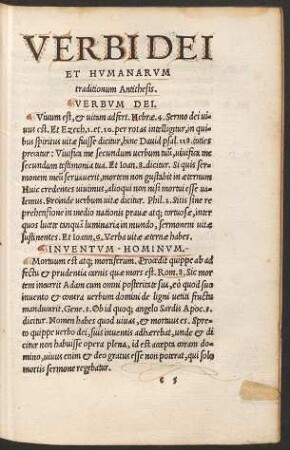 VERBI DEI
ET HVMANARVM
traditionum Antithesis.
VERBVM DEI.
Viuum est, & uitam adfert. Hebræ. 4. Sermo dei ui
uus est. Et Ezech. 1. et. 10. per rotas intelligitur, in qui
bus spiritus uitæ fuisse dicitur, hinc Dauid psal. 118. toties
precatur: Viuifica me secundum uerbum tuũ, uiuifica me
secundum testimonia tua. Et Ioan. 8. dicitur. Si quis ser
monem meũ seruauerit, mortem non gustabit in æternum
Huic credentes uiuimus, alioqui non nisi mortui esse ua
lemus. Proinde uerbum uitæ dicitur. Phil. 2. Sitis sine re
prehensione in medio nationis prauæ atq; tortuosæ, inter
quos lucete tanquã luminaria in mundo, sermonem uitæ
sustinentes. Et Ioann. 6. Verba uitæ æternæ habes.
INVENTVM HOMINVM.
Mortuum est atq; mortiferum. Procedit quippe ab ad
fectu & prudentia carnis quæ mors est. Rom. 8. Sic mor
tem inuexit Adam cum omni posteritate sua, eò quòd suo
inuento & contra uerbum domini de ligni uetiti fructu
manducarit. Gene. 3. Ob id quoq; angelo Sardis Apoc. 3.
dicitur. Nomen habes quod uiuas, & mortuus es. Spre
to quippe uerbo dei, suis inuentis adhærebat, unde & di
citur non habuisse opera plena, id est accepta coram do
mino, uiuus enim & deo gratus esse non poterat, qui solo
mortis sermone regebatur.
c 5